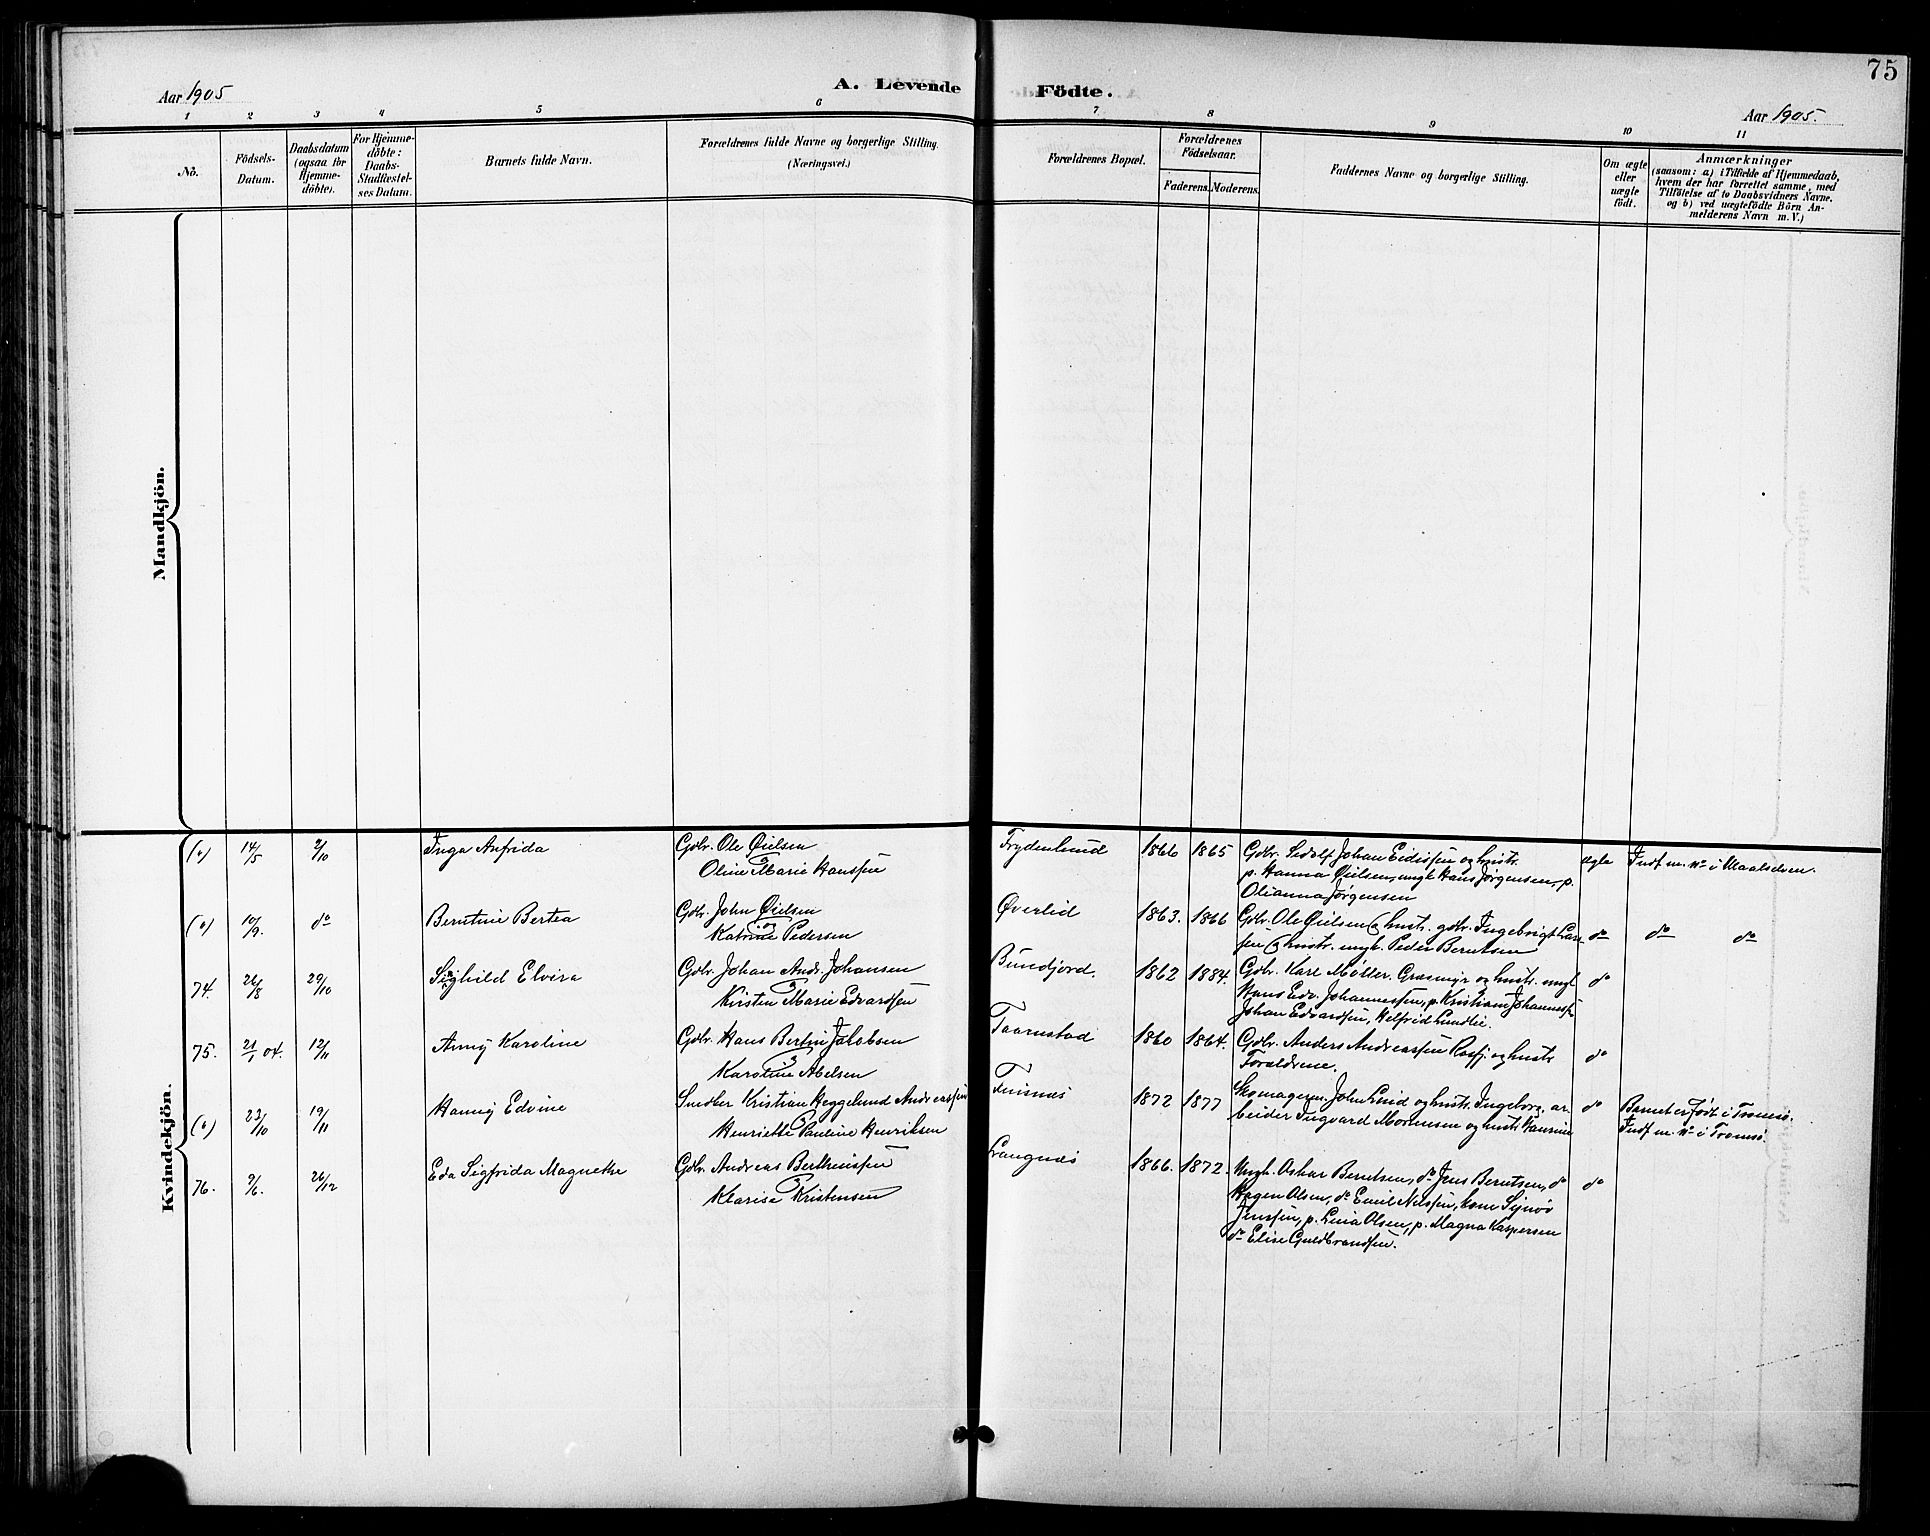 75
Aar 1905
A. Levende Födte.
Aar 1905.
1 2 3 4 5 6 7 8 9 10 11
No.
Födsels-
Datum.
Daabsdatum
(ogsaa for
Hjemme-
döbte).
For Hjemme-
döbte:
Daabs-
Stadfæstel-
ses Datum.
Barnets fulde Navn.
Forældrenes fulde Navne og borgerlige Stilling.
(Næringsvei.)
Forældrenes Bopæl.
Forældrenes
Födselsaar.
Faderens. Moderens.
Faddernes Navne og borgerlige Stilling.
Om ægte
eller
uægte
födt.
Anmærkninger
(saasom: a) i Tilfælde af Hjemmedaab,
hvem der har forrettet samme, med
Tilföielse af to Daabsvidners Navne.
og b) ved uægtefödte Börn An-
melderens Navn m. V.)
Mandkjön.
Kvindekjön.
14/5 2/10 Inga Anfrida
Gdbr. Ole Øielsen
og
Oline Marie Hanssen
Frydenlund 1866 1865
Gdbr. Sedolf Johan Eidissen og hustr.
p. Hanna Øielsen, ungk Hans Jørgensen, p.
Olianna Jørgensen
ægte
Indf. m. No i Maalselven.
10/9. do Berntine Bertea
Gdbr. John Øielsen
og
Katrine Pedersen
Øverlid 1863. 1866
Gdbr. Ole Øielsen & hustr. gdbr. Ingebrigt Lar-
sen & hustr. ungk. Peder Berntsen
do do do
74. 26/8 29/10 Sighild Elvira
Gdbr. Johan Andr. Johansen
og
Kirsten Marie Edvardsen
Bundjord. 1862 1884.
Gdbr. Karl Møller. Græsmyr og hustr. ungk
Hans Edv. Johannessen, p. Kristiane Johanness
Johan Edvardsen, Helfrid Lundlie.
do
75. 21/1 04. 12/11 Anny Karoline
Gdbr. Hans Bertin Jakobsen
og
Karoline Abelsen
Taarnstad 1860 1864.
Gdbr. Anders Andreassen Rossfj. og hustr
Forældrene.
do
22/10 19/11 Hanny Edvine
Snedker Kristian Heggelund Andreassen
og
Henriette Pauline Henriksen
Finsnæs 1872 1877
Skomagerm. John Lind og hustr. Ingeborg, ar-
beider Ingvard Mortensen og hustr Hansine
do
Barnet er født i Tromsø.
Indf m. No i Tromsø.
76. 9/6. 26/12 Eda Sigfrida Magnethe
Gdbr. Andreas Bertheussen
og
Klarise Kristensen
Langnæs 1866. 1872.
Ungk. Oskar Berntsen, do Jens Berntsen, do
Hagen Olsen, do Emil Nilssen, kone Synnø
Jenssen, p. Lina Olsen, p. Magna Kaspersen
do Elise Guldbrandsen.
do